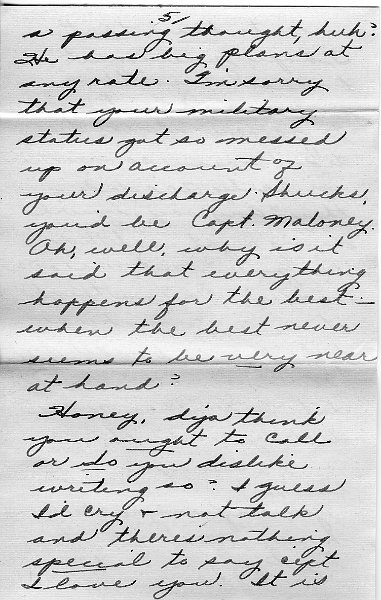 5/
a passing thought, huh?
He has big plans at
any rate. I'm sorry
that your military
status got so messed
up on account of
your discharge. Shucks,
you'd be Capt. Maloney.
Oh, well, why is it
said that everything
happens for the best –
when the best never
seems to be very near
at hand?
Honey, dija think
you ought to call
or do you dislike
writing so? I guess
I'd cry + not talk
and there's nothing
special to say cept
I love you. It is